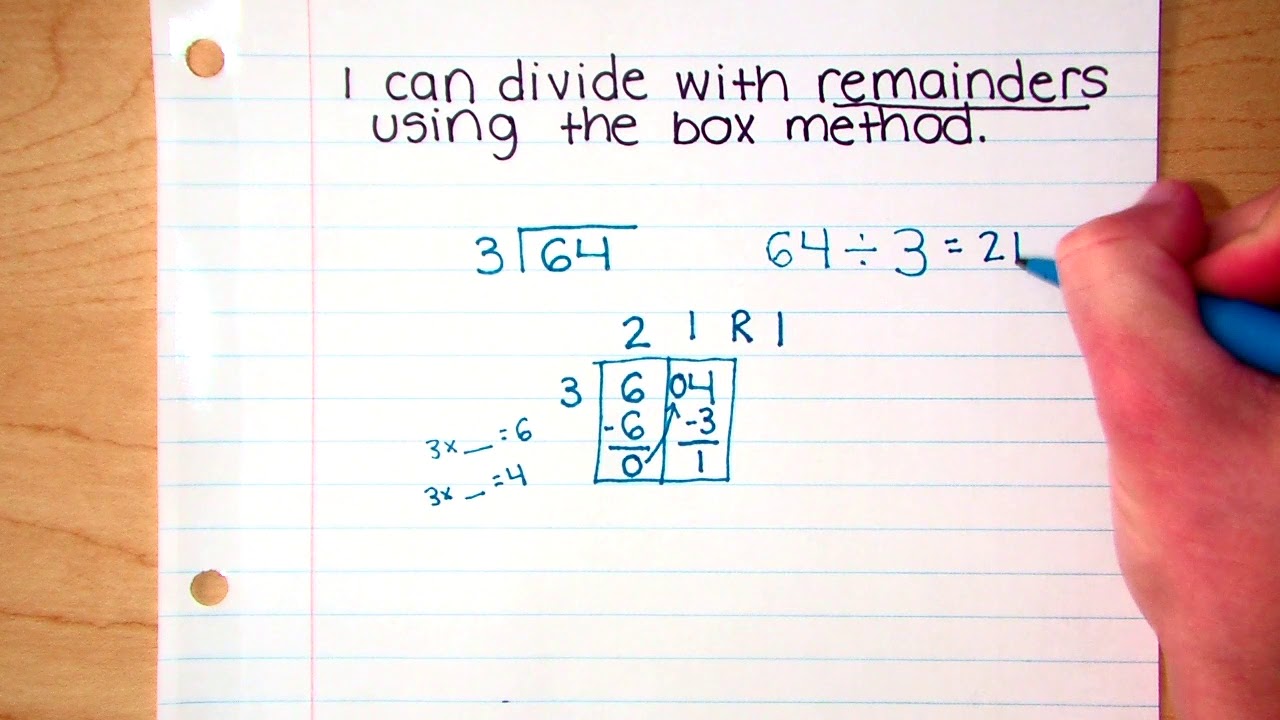 I can divide with remainders
using the box method.
3 64 64 ÷ 3 = 21
2 1 R 1
3 6 04
3x __ = 6 -6 -3
3x __ = 4 0 1